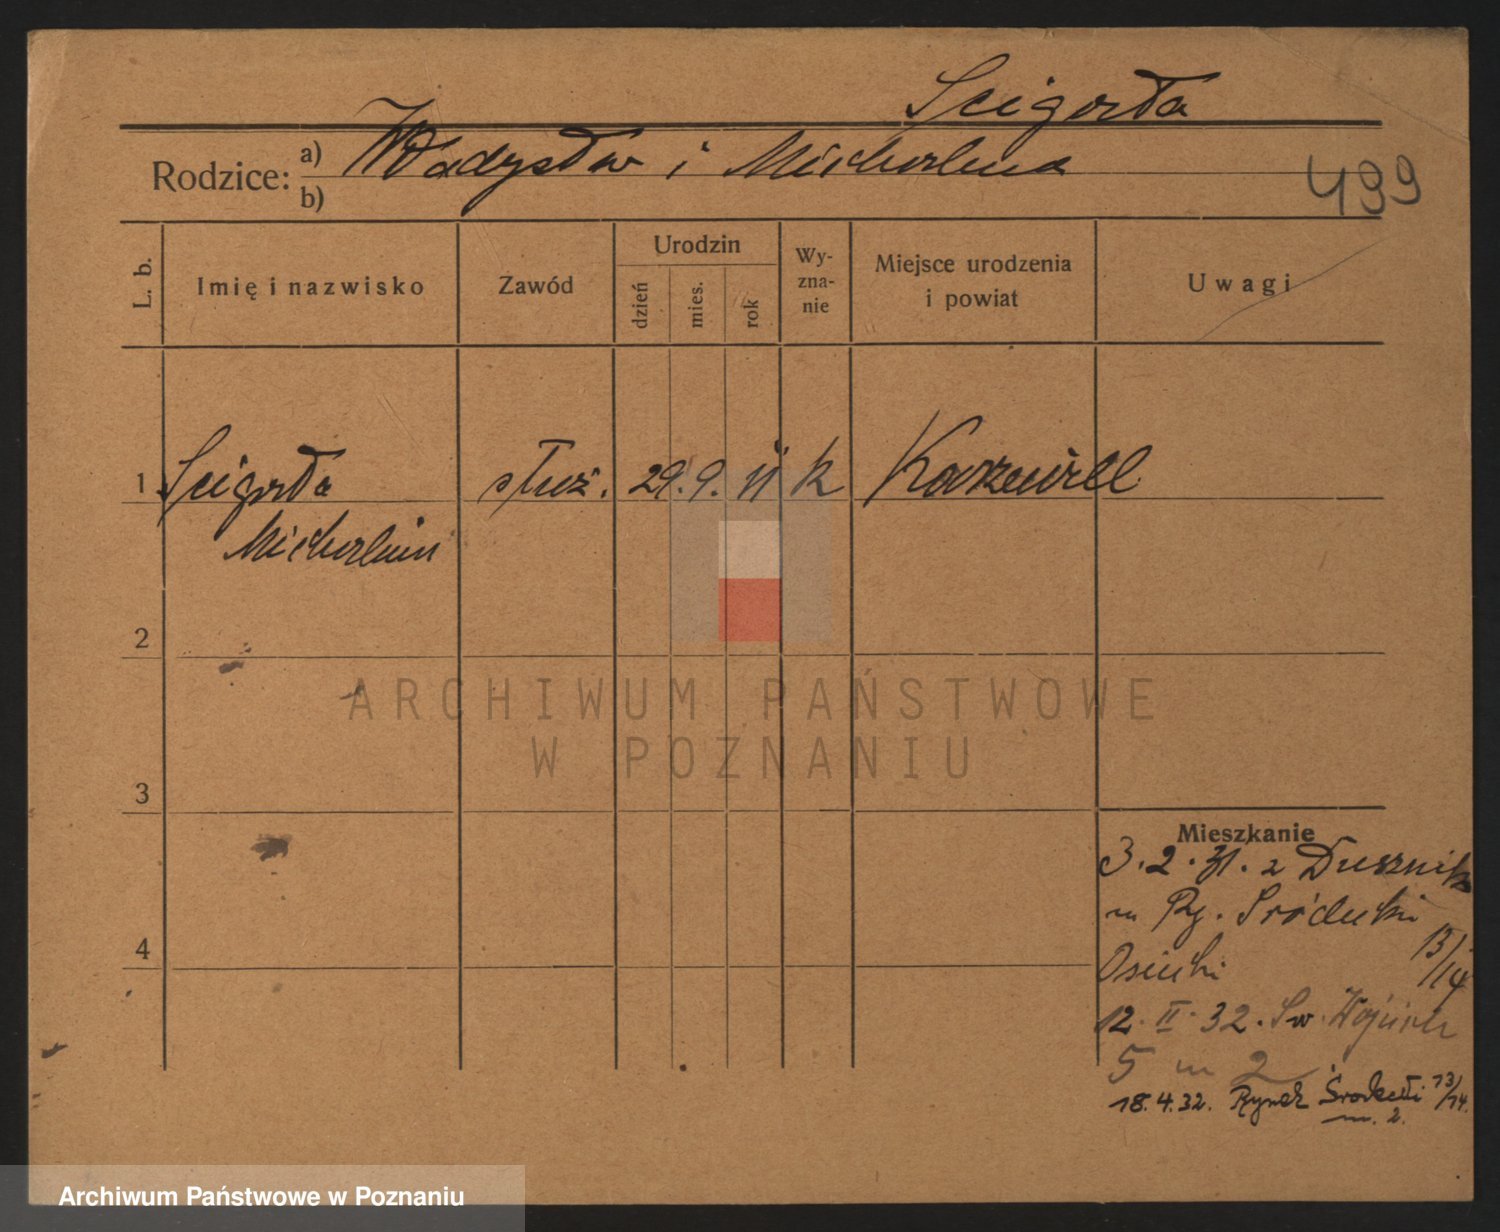 Scigorła
Rodzice: a) Władysław i Michalina
b)
499
L. b.
Imię i nazwisko
Zawód
Urodzin
dzień
mies.
rok
Wy-
zna-
nie
Miejsce urodzenia
i powiat
Uwagi
1 Scigorła służ. 29. 9. 11 k
Michalina
2
3
4
Mieszkanie
3. 2. 31. z Dusznik
m Ry. Śródecki
13/14
12. II. 32. Św. Wojciech
5 m 2
18. 4. 32. Rynek Śródecki 13/14.
m. 2.
ARCHIWUM PAŃSTWOWE
W POZNANIU
Archiwum Państwowe w Poznaniu